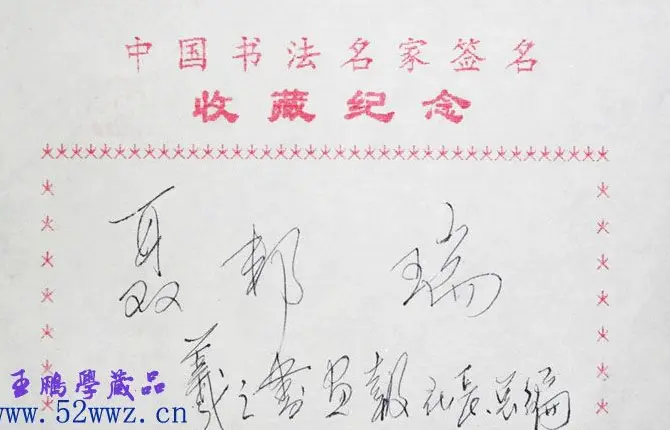 中国书法名家签名
收藏纪念
聂邦瑞
羲之書画報社長总编
王鹏學藏品
www.52wwz.cn